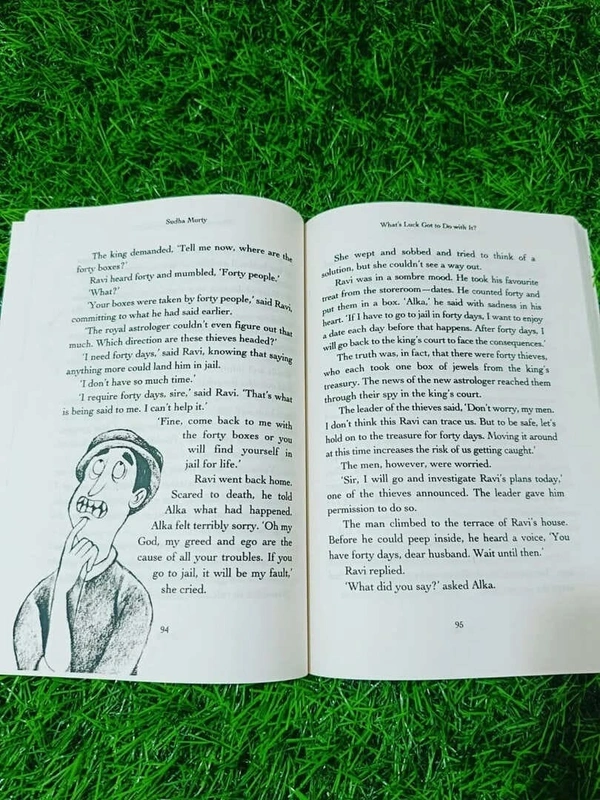 Sudha Murty
The king demanded, 'Tell me now, where are the
forty boxes?'
Ravi heard forty and mumbled, 'Forty people.'
'What?'
'Your boxes were taken by forty people,' said Ravi,
committing to what he had said earlier.
'The royal astrologer couldn't even figure out that
much. Which direction are these thieves headed?'
'I need forty days,' said Ravi, knowing that saying
anything more could land him in jail.
'I don't have so much time.'
'I require forty days, sire,' said Ravi. 'That's what
is being said to me. I can't help it.'
'Fine, come back to me with
the forty boxes or you
will find yourself in
jail for life.'
Ravi went back home.
Scared to death, he told
Alka what had happened.
Alka felt terribly sorry. 'Oh my
God, my greed and ego are the
cause of all your troubles. If you
go to jail, it will be my fault,'
she cried.
94
What's Luck Got to Do with It?
She wept and sobbed and tried to think of a
solution, but she couldn't see a way out.
Ravi was in a sombre mood. He took his favourite
treat from the storeroom—dates. He counted forty and
put them in a box. 'Alka,' he said with sadness in his
heart. 'If I have to go to jail in forty days, I want to enjoy
a date each day before that happens. After forty days, I
will go back to the king's court to face the consequences.'
The truth was, in fact, that there were forty thieves,
who each took one box of jewels from the king's
treasury. The news of the new astrologer reached them
through their spy in the king's court.
The leader of the thieves said, 'Don't worry, my men.
I don't think this Ravi can trace us. But to be safe, let's
hold on to the treasure for forty days. Moving it around
at this time increases the risk of us getting caught.'
The men, however, were worried.
'Sir, I will go and investigate Ravi's plans today,'
one of the thieves announced. The leader gave him
permission to do so.
The man climbed to the terrace of Ravi's house.
Before he could peep inside, he heard a voice, 'You
have forty days, dear husband. Wait until then.'
Ravi replied.
'What did you say?' asked Alka.
95